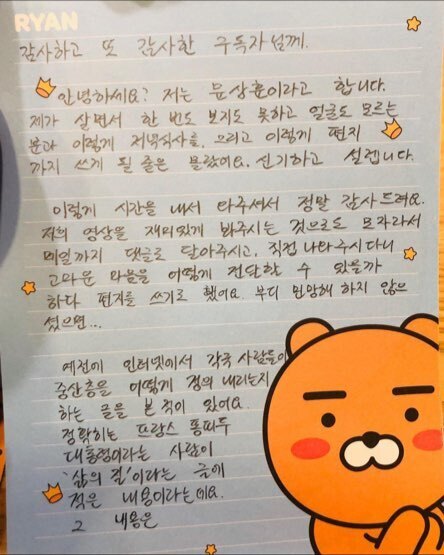 RYAN
감사하고 또 감사한 구독자님께.
안녕하세요? 저는 문상훈이라고 합니다.
제가 살면서 한 번도 보지도 못하고 얼굴도 모르는
분과 이렇게 저녁식사를, 그리고 이렇게 편지
까지 쓰게 될 줄은 몰랐어요. 신기하고 설렙니다.
이렇게 시간을 내서 와주셔서 정말 감사드려요.
저희 영상을 재미있게 봐주시는 것으로도 모자라서
메일까지 댓글로 달아주시고, 직접 나와주시다니
고마운 마음을 어떻게 전달할 수 있을까
하다 편지를 쓰기로 했어요. 부디 민망해 하지 않으
셨으면...
예전에 인터넷에서 각국 사람들이
중산층을 어떻게 정의 내리는지
하는 글을 본 적이 있어요.
정확히는 프랑스 퐁피두
대통령이라는 사람이
'삶의 질'이라는 글에
적은 내용이라는데요.
그 내용은